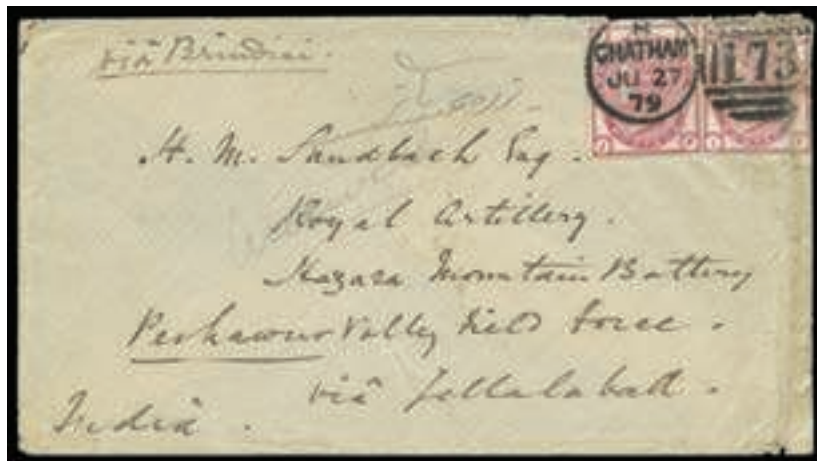 viâ Brindisi.
H
CHATHAM
JU 27
79
173
H. M. Sandbach Esq.
Royal Artillery.
Hazara Mountain Battery
Peshawur Valley Field Force.
viâ Jellalabad.
India.